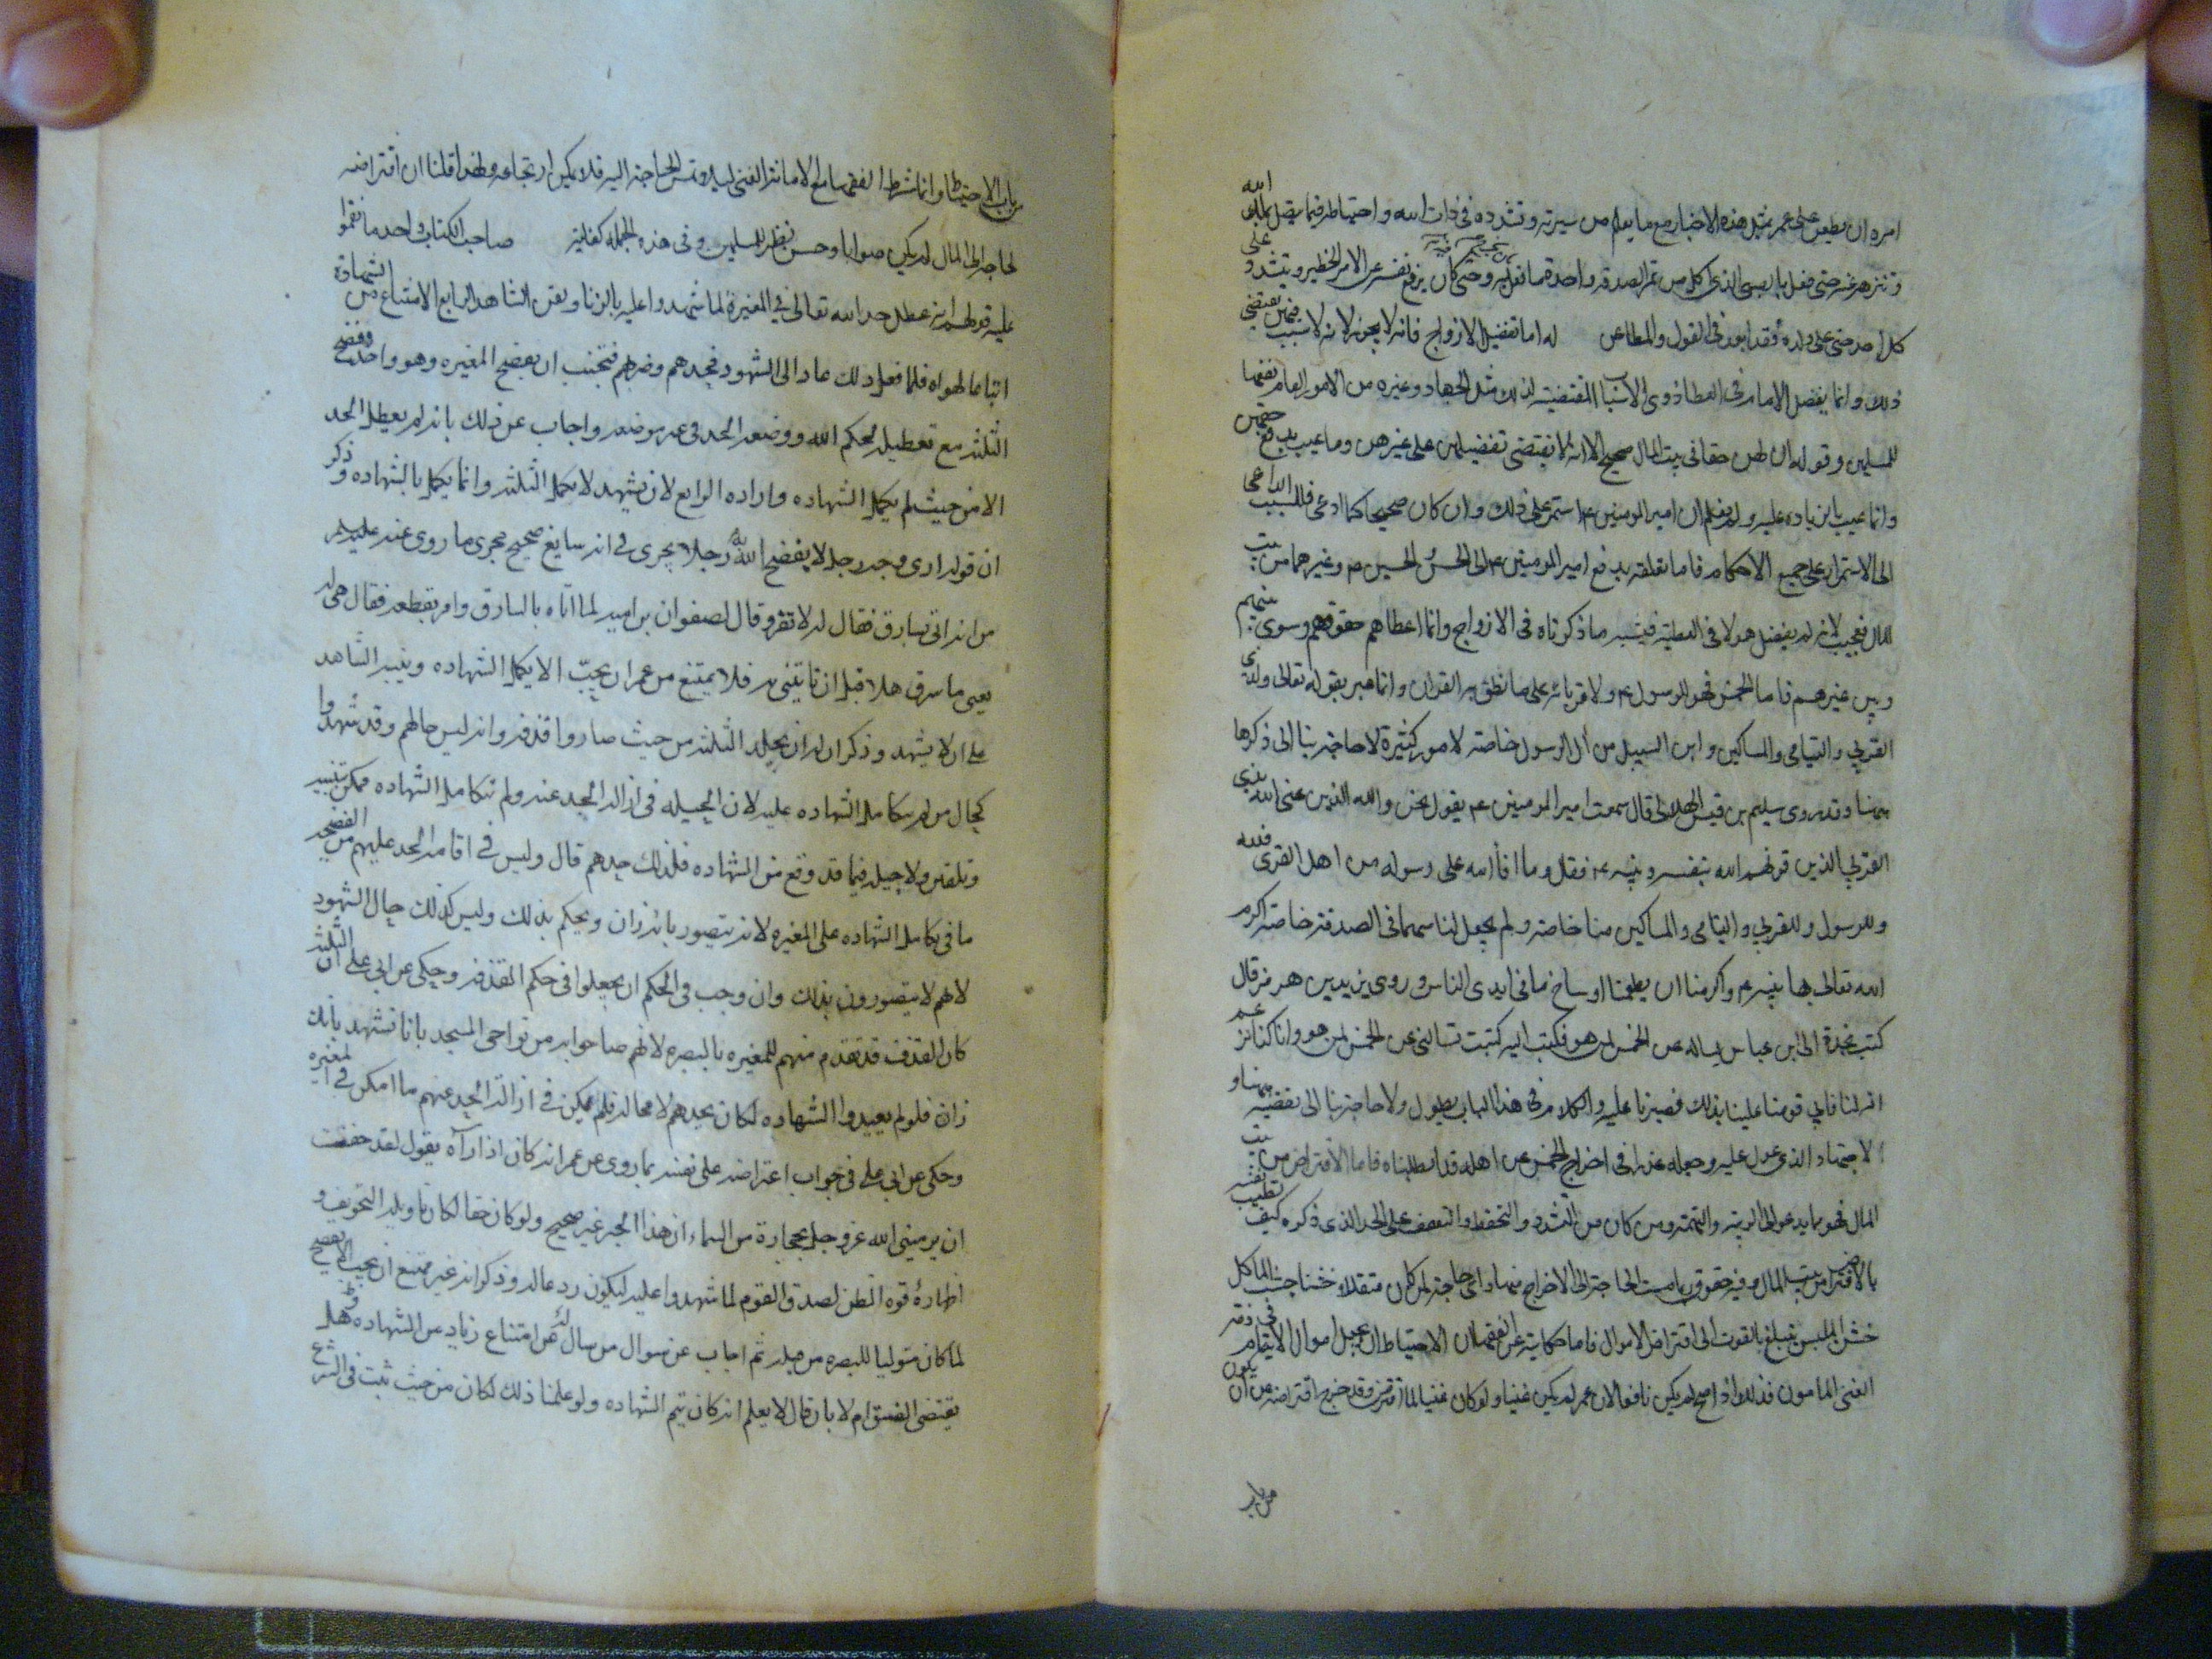 امره ان يطعن على عمر بمثل هذه الاخبار مع ما يعلم من سيرته وتشدده في ذات الله واحتياطه فيما يتصل بملك الله
وتنزهه عنه حتى فعل بالصبي الذي اكل من تمر الصدقة واحدة ما فعل وحتى كان يرفع نفسه عن الامر الخطير ويتشدد على
كل احد حتى على ولده فقد ابعد في القول والمطاعن له اما تفضيل الازواج فانه لا يجوز لانه لا سبب فيهن يقتضي
ذلك وانما يفضل الامام في العطا ذوي الاسباب المقتضية لذلك مثل الجهاد وغيره من الامور العام نفعها
للمسلمين وقوله ان لهن حقا في بيت المال صحيح الا انه لا يقتضي تفضيلهن على غيرهن وما عيب بدفع حقهن
وانما عيب بالزيادة عليه ولم يعلم ان امير المومنين ع استمر على ذلك وان كان صحيحا كما ادعى فالسبب الداعي
الى الاستمرار على جميع الاحكام فاما تعلقه بدفع امير المومنين ع الى الحسن والحسين ع وغيرهما من بيت
المال فعجيب لانه لم يفضل هولا في العطية فيشبه ما ذكرناه في الازواج وانما اعطاهم حقوقهم وسوى بينهم
وبين غيرهم فاما الخمس فهو للرسول ع ولاقربائه على ما نطق به القران وانما عبر بقوله تعالى ولذي
القربى واليتامى والمساكين وابن السبيل من آل الرسول خاصة لامور كثيرة لا حاجة بنا الى ذكرها
ههنا وقد روى سليم بن قيس الهلالي قال سمعت امير المومنين ع يقول نحن والله الذين عنى الله بذي
القربى الذين قرنهم الله بنفسه ونبيه ع فقل وما افا الله على رسوله من اهل القرى فلله
وللرسول ولذي القربى واليتامى والمساكين منا خاصة ولم يجعل لنا سهما في الصدقة خاصة اكرم
الله تعالى بها نبيه ع واكرمنا ان يطعمنا اوساخ ما في ايدي الناس وروى يزيد بن هرمز قال
كتب نجدة الى ابن عباس يساله عن الخمس لمن هو فكتب اليه كتبت تسالني عن الخمس لمن هو وانا كنا نزعم
انه لنا فابى قومنا علينا بذلك فصبرنا عليه والكلام في هذا الباب يطول ولا حاجة بنا الى تقضيه ههنا و
الاجتهاد الذي عول عليه وجعله عذرا في اخراج الخمس عن اهله قد ابطلناه فاما الاقتراض من بيت
المال فهو مما يدعو الى الريبة والتهمة ومن كان من التشدد والتحفظ والتقشف على الحد الذي ذكره كيف تطيب نفسه
بالاقتراض من بيت المال وفيه حقوق ربما مست الحاجة الى الاخراج منها واي حاجة لمن كان متقللا خشنا جشب الماكل
خشن الملبس يتبلغ بالقوت الى اقتراض الاموال فاما حكايته عن الفقهاء ان الاحتياط ان يجعل اموال الايتام في ذمة
الغني المامون فذلك اذا صح لم يكن نافعا لان عمر لم يكن غنيا ولو كان غنيا لما اقترض وقد خرج اقتراضه عن ان يكون
من باب
من باب الاحتياط وانما شرط الفقهاء مع الامانة الغنى لئلا تمس الحاجة اليه فلا يمكن ارتجاعه ولهذا قلنا ان اقتراضه
لحاجة الى المال لم يكن صوابا وحسن نظر للمسلمين وفي هذه الجملة كفاية صاحب الكتاب واحد ما نقموا
عليه قولهم انه عطل حد الله تعالى في المغيرة لما شهدوا عليه بالزنا ولقن الشاهد الرابع الامتناع من الشهادة
اتباعا لهواه فلما فعل ذلك عاد الى الشهود فحدهم وضربهم فتجنب ان يفضح المغيره وهو واحد وفضح
الثلثة مع تعطيله لحكم الله ووضعه الحد في غير موضعه واجاب عن ذلك بانه لم يعطل الحد
الا من حيث لم يكمل الشهاده واراده الرابع لان يشهد لا يكمل الثلثة وانما يكمل بالشهاده وذكر
ان قوله ارى وجه رجل لا يفضح الله رجلا يجرى في انه سايغ صحيح مجرى ما روى عنه عليه السلم
من انه اتي بسارق فقال له لا تقر وقال لصفوان بن اميه لما اتاه بالسارق وامر بقطعه فقال هي له
يعني ما سرق هلا قبل ان تاتيني به فلا يمتنع من عمر ان يحب الا يكمل الشهاده وينبه الشاهد
على ان لا يشهد وذكر ان له ان يجلد الثلثة من حيث صاروا قذفه وانه ليس حالهم وقد شهدوا
كحال من لم يتكامل الشهاده عليه لان الحيله في ازالة الحد عنه ولم تتكامل الشهاده ممكن بتنبيه
وتلقين ولا حيله فيما قد وقع من الشهاده فلذلك حدهم قال وليس في اقامة الحد عليهم من الفضيحة
ما في تكامل الشهاده على المغيره لانه يتصور بانه زان ويحكم بذلك وليس كذلك حال الشهود
لانهم لا يتصورون بذلك وان وجب في الحكم ان يجعلوا في حكم القذفه وحكى عن ابي علي ان الثلثة
كان القذف قد تقدم منهم للمغيره بالبصره لانهم صاحوا به من نواحي المسجد بانا نشهد بانك
زان فلو لم يعيدوا الشهاده لكان يحدهم لا محاله فلم يمكن في ازالة الحد عنهم ما امكن في المغيره
وحكى عن ابي علي في جواب اعتراضه على نفسه بما روى عن عمر انه كان اذا رآه يقول لقد خفت
ان يرميني الله عز وجل بحجارة من السماء ان هذا الخبر غير صحيح ولو كان حقا لكان تاويله التخويف و
اظهارة قوه الظن لصدق القوم لما شهدوا عليه ليكون ردعا له وذكر انه غير ممتنع ان يحب الا يفضح
لما كان متوليا للبصره من قبله ثم اجاب عن سوال من ساله عن امتناع زياد من الشهاده وهل
يقتضي الفسق ام لا بان قال لا يعلم انه كان يتم الشهاده ولو علمنا ذلك لكان من حيث ثبت في الشرع